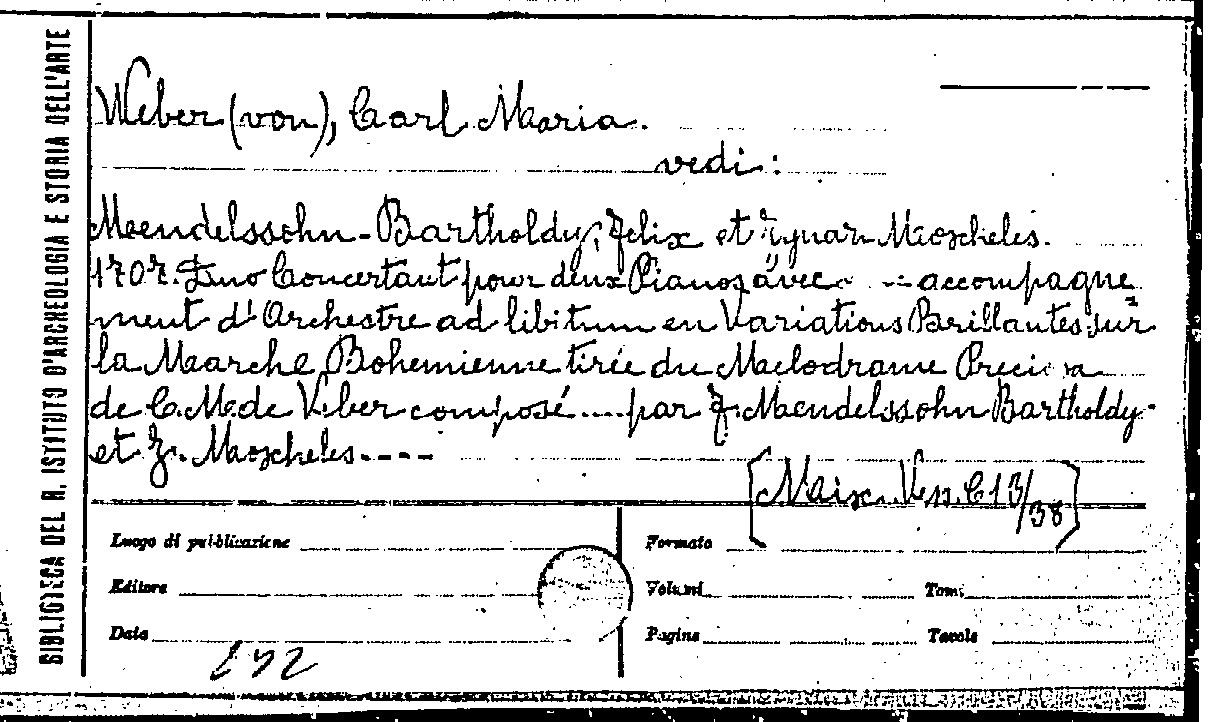 BIBLIOTECA DEL R. ISTITUTO D'ARCHEOLOGIA E STORIA DELL'ARTE
Weber (von), Carl Maria.
vedi:
Mendelssohn-Bartholdy, Felix et Ignar Moscheles.
1707. Duo Concertant pour deux Pianos avec .... accompagne
ment d'Orchestre ad libitum en Variations Brillantes sur
la Marche Bohemienne tirée du Melodrame Preciosa
de C. M. de Veber composé .... par F. Mendelssohn Bartholdy
et I. Moscheles ----
[Misc. Ven. C 13/38]
Luogo di pubblicazione
Formato
Editore
Volumi
Tomi
Data
Pagine
Tavole